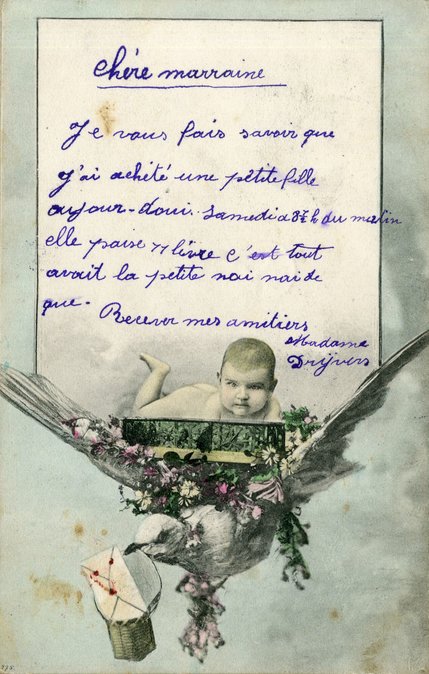 Chére marraine
Je vous fais savoir que
j'ai acheté une petite fille
aujour-doui. Samedi a 8½ h du matin
elle paise 11 livre c'est tout
avait la petite noi naide
que.
Recever mes amitiers
Madame
Drijvers